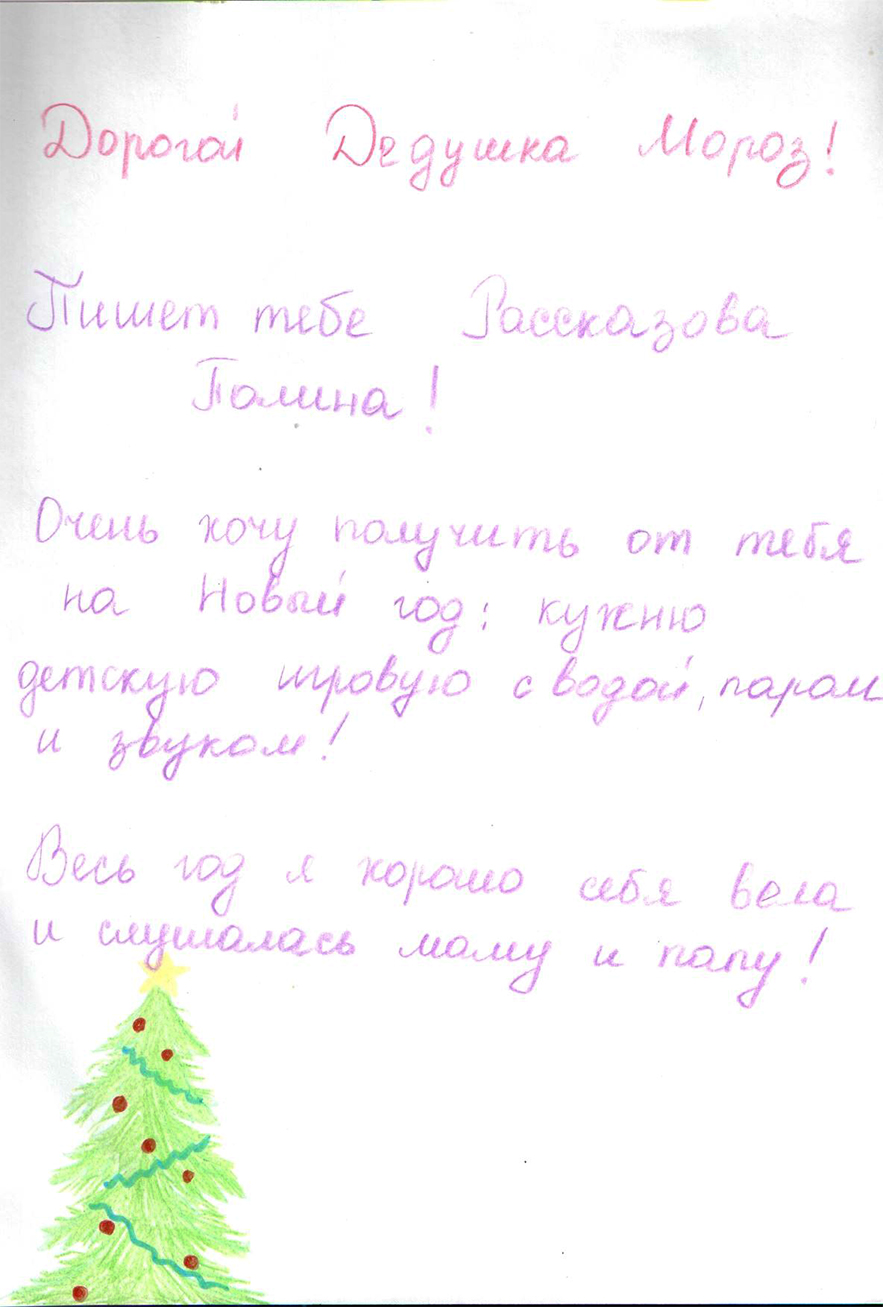 Дорогой Дедушка Мороз!
Пишет тебе Рассказова
Полина!
Очень хочу получить от тебя
на Новый год: кухню
детскую игровую с водой, паром
и звуком!
Весь год я хорошо себя вела
и слушалась маму и папу!